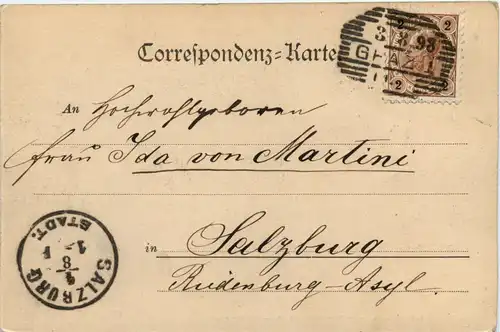 2 2
3.8.98
GRAZ
2 2
Correspondenz=Karte
An Hochwohlgeboren
Frau Ida von Martini
in Salzburg
Rudenburg-Asyl.
SALZBURG
4
8
STADT.